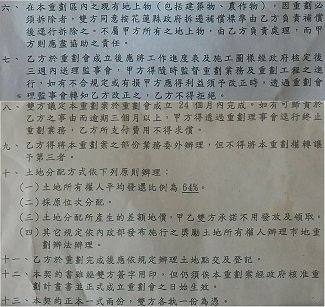 六、在本重劃區內之現有地上物(包括建築物、農作物),因重劃必
須拆除者,雙方同意按花蓮縣政府拆遷補償標準由乙方負責補償
後逕行拆除之。不屬甲方所有之地上物,由乙方負責處理,而甲
方則應盡協助之責任。
七、乙方於重劃會成立後應將工作進度表及施工圖樣經政府核定後
三週內送理監事會,甲方得隨時監督重劃業務及重劃工程之進
行,如有不合規定或有損甲方應得利益須予改正時,透過重劃會
理監事會轉知乙方改正之,乙方不得拒絕。
八、雙方議定本重劃案於重劃會成立 24 個月內完成。如有可歸責於
乙方之事由而逾期三個月以上,甲方得透過重劃理事會逕行終止
重劃業務,乙方所支付費用不得求償。
九、乙方得將本重劃案之部份業務委外辦理,但不得將本重劃權轉讓
予第三者。
十、土地分配方式依下列原則辦理:
(一)土地所有權人平均發還比例為 64%。
(二)採原位次分配。
(三)土地分配所產生的差額地價,甲乙雙方承諾不用發放及領取。
(四)其它規定依內政部發布施行之獎勵土地所有權人辦理市地重
劃辦法辦理。
十一、乙方於重劃完成後應依規定辦理土地點交及登記。
十二、本契約書雖經雙方簽字用印,但仍須俟本重劃案經政府核准重
劃計畫書並正式成立重劃會之日始生效。
十三、本契約正本一式兩份,雙方各執一份為憑。